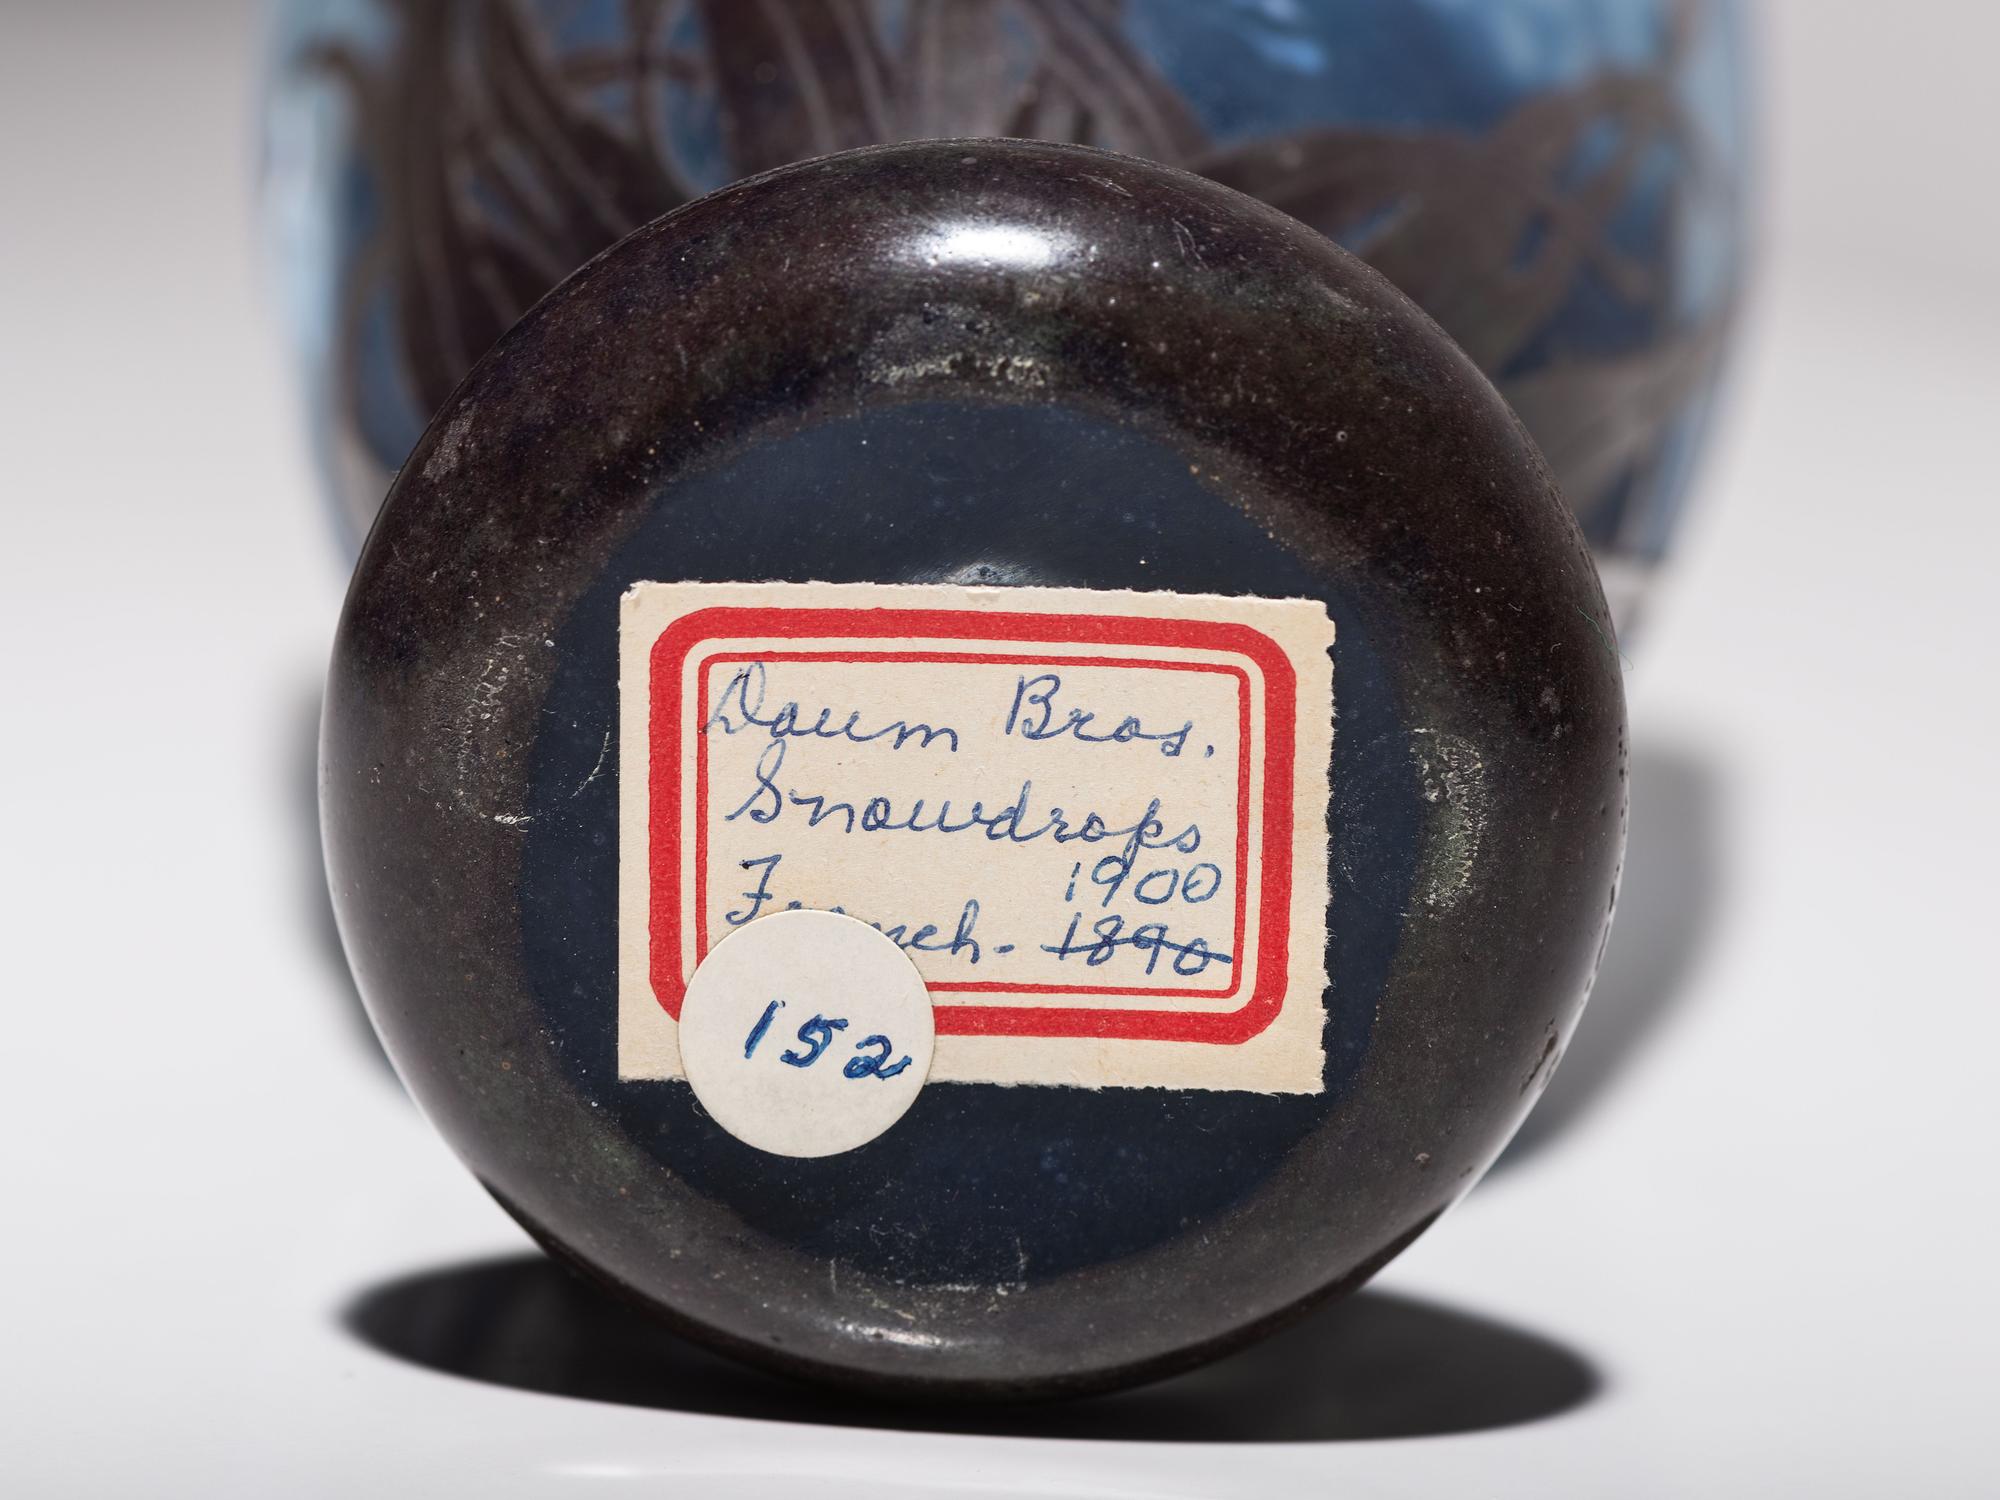 Daum Bros.
Snowdrops
1900
French - 1890
152